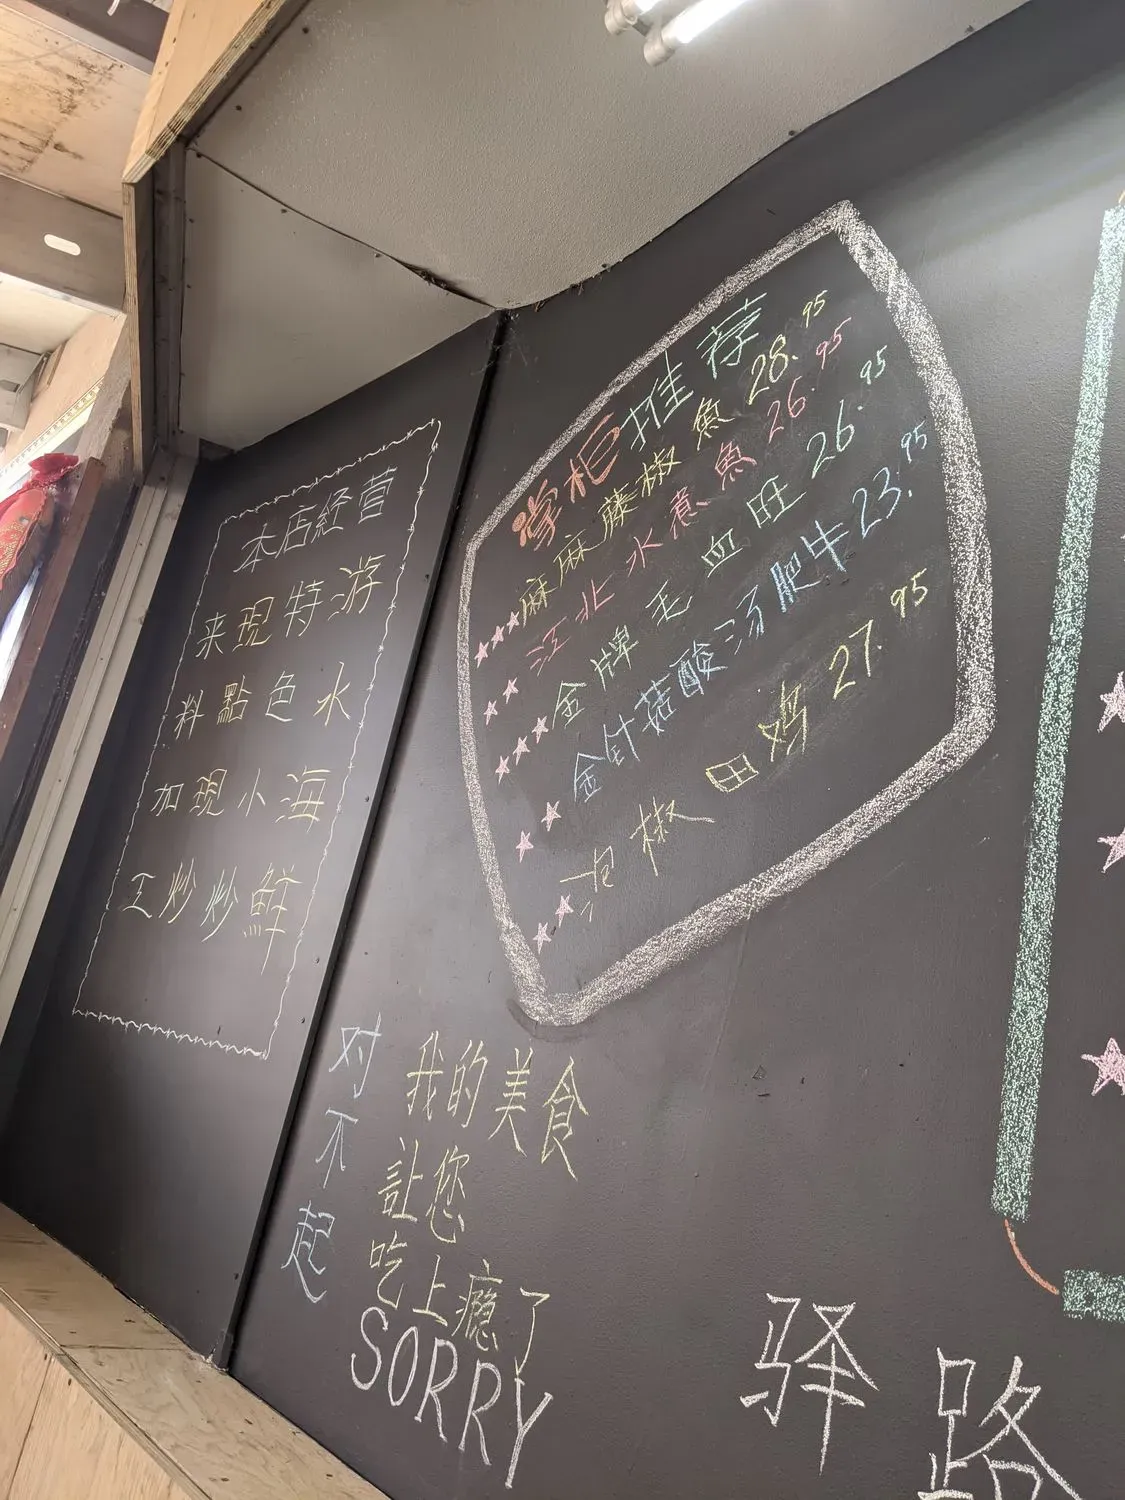 本店經营
来現特游
料點色水
加現小海
工炒炒鮮
掌柜推荐
麻麻藤椒魚 28.95
江北水煮魚 26.95
金牌毛血旺 26.95
金針菇酸汤肥牛 23.95
泡椒田鸡 27.95
对不起
我的美食
讓您
吃上瘾了
SORRY
驿路